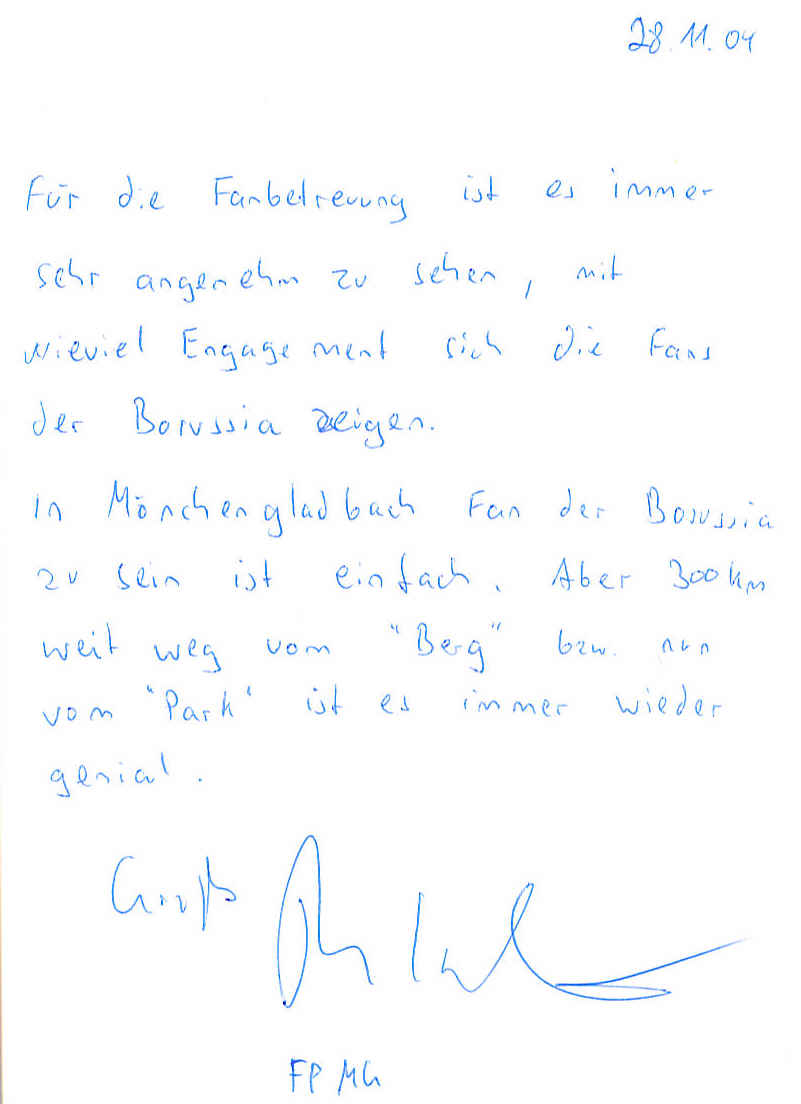 28.11.04
Für die Fanbetreuung ist es immer
sehr angenehm zu sehen, mit
wieviel Engagement sich die Fans
der Borussia zeigen.
in Mönchengladbach Fan der Borussia
zu sein ist einfach. Aber 300 km
weit weg vom "Berg" bzw. nun
vom "Park" ist es immer wieder
genial.
Gruß
FP MG